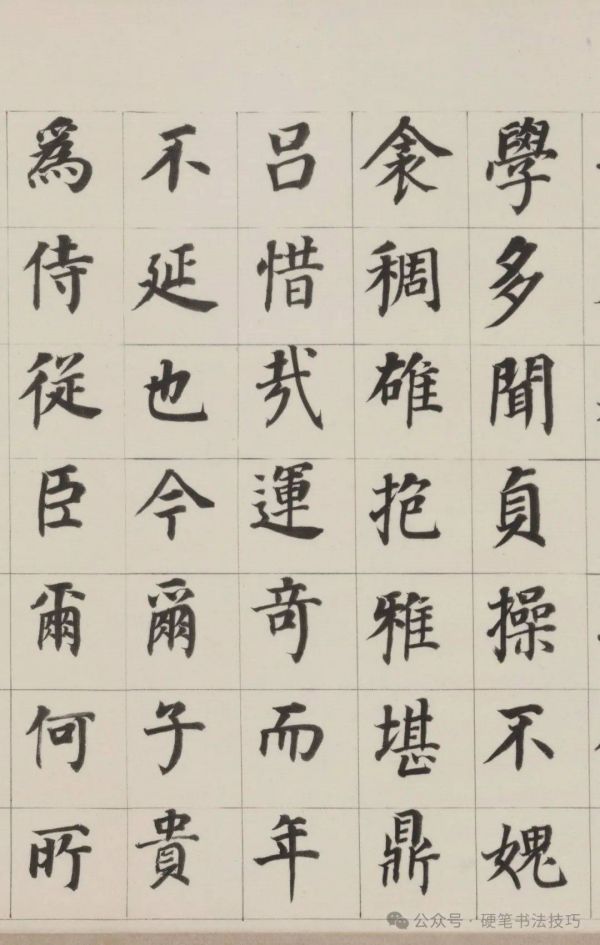 學多聞貞操不媿
衾稠雄抱雅堪鼎
呂惜哉運竒而年
不延也今爾子貴
爲侍從臣爾何所
公众号 · 硬笔书法技巧